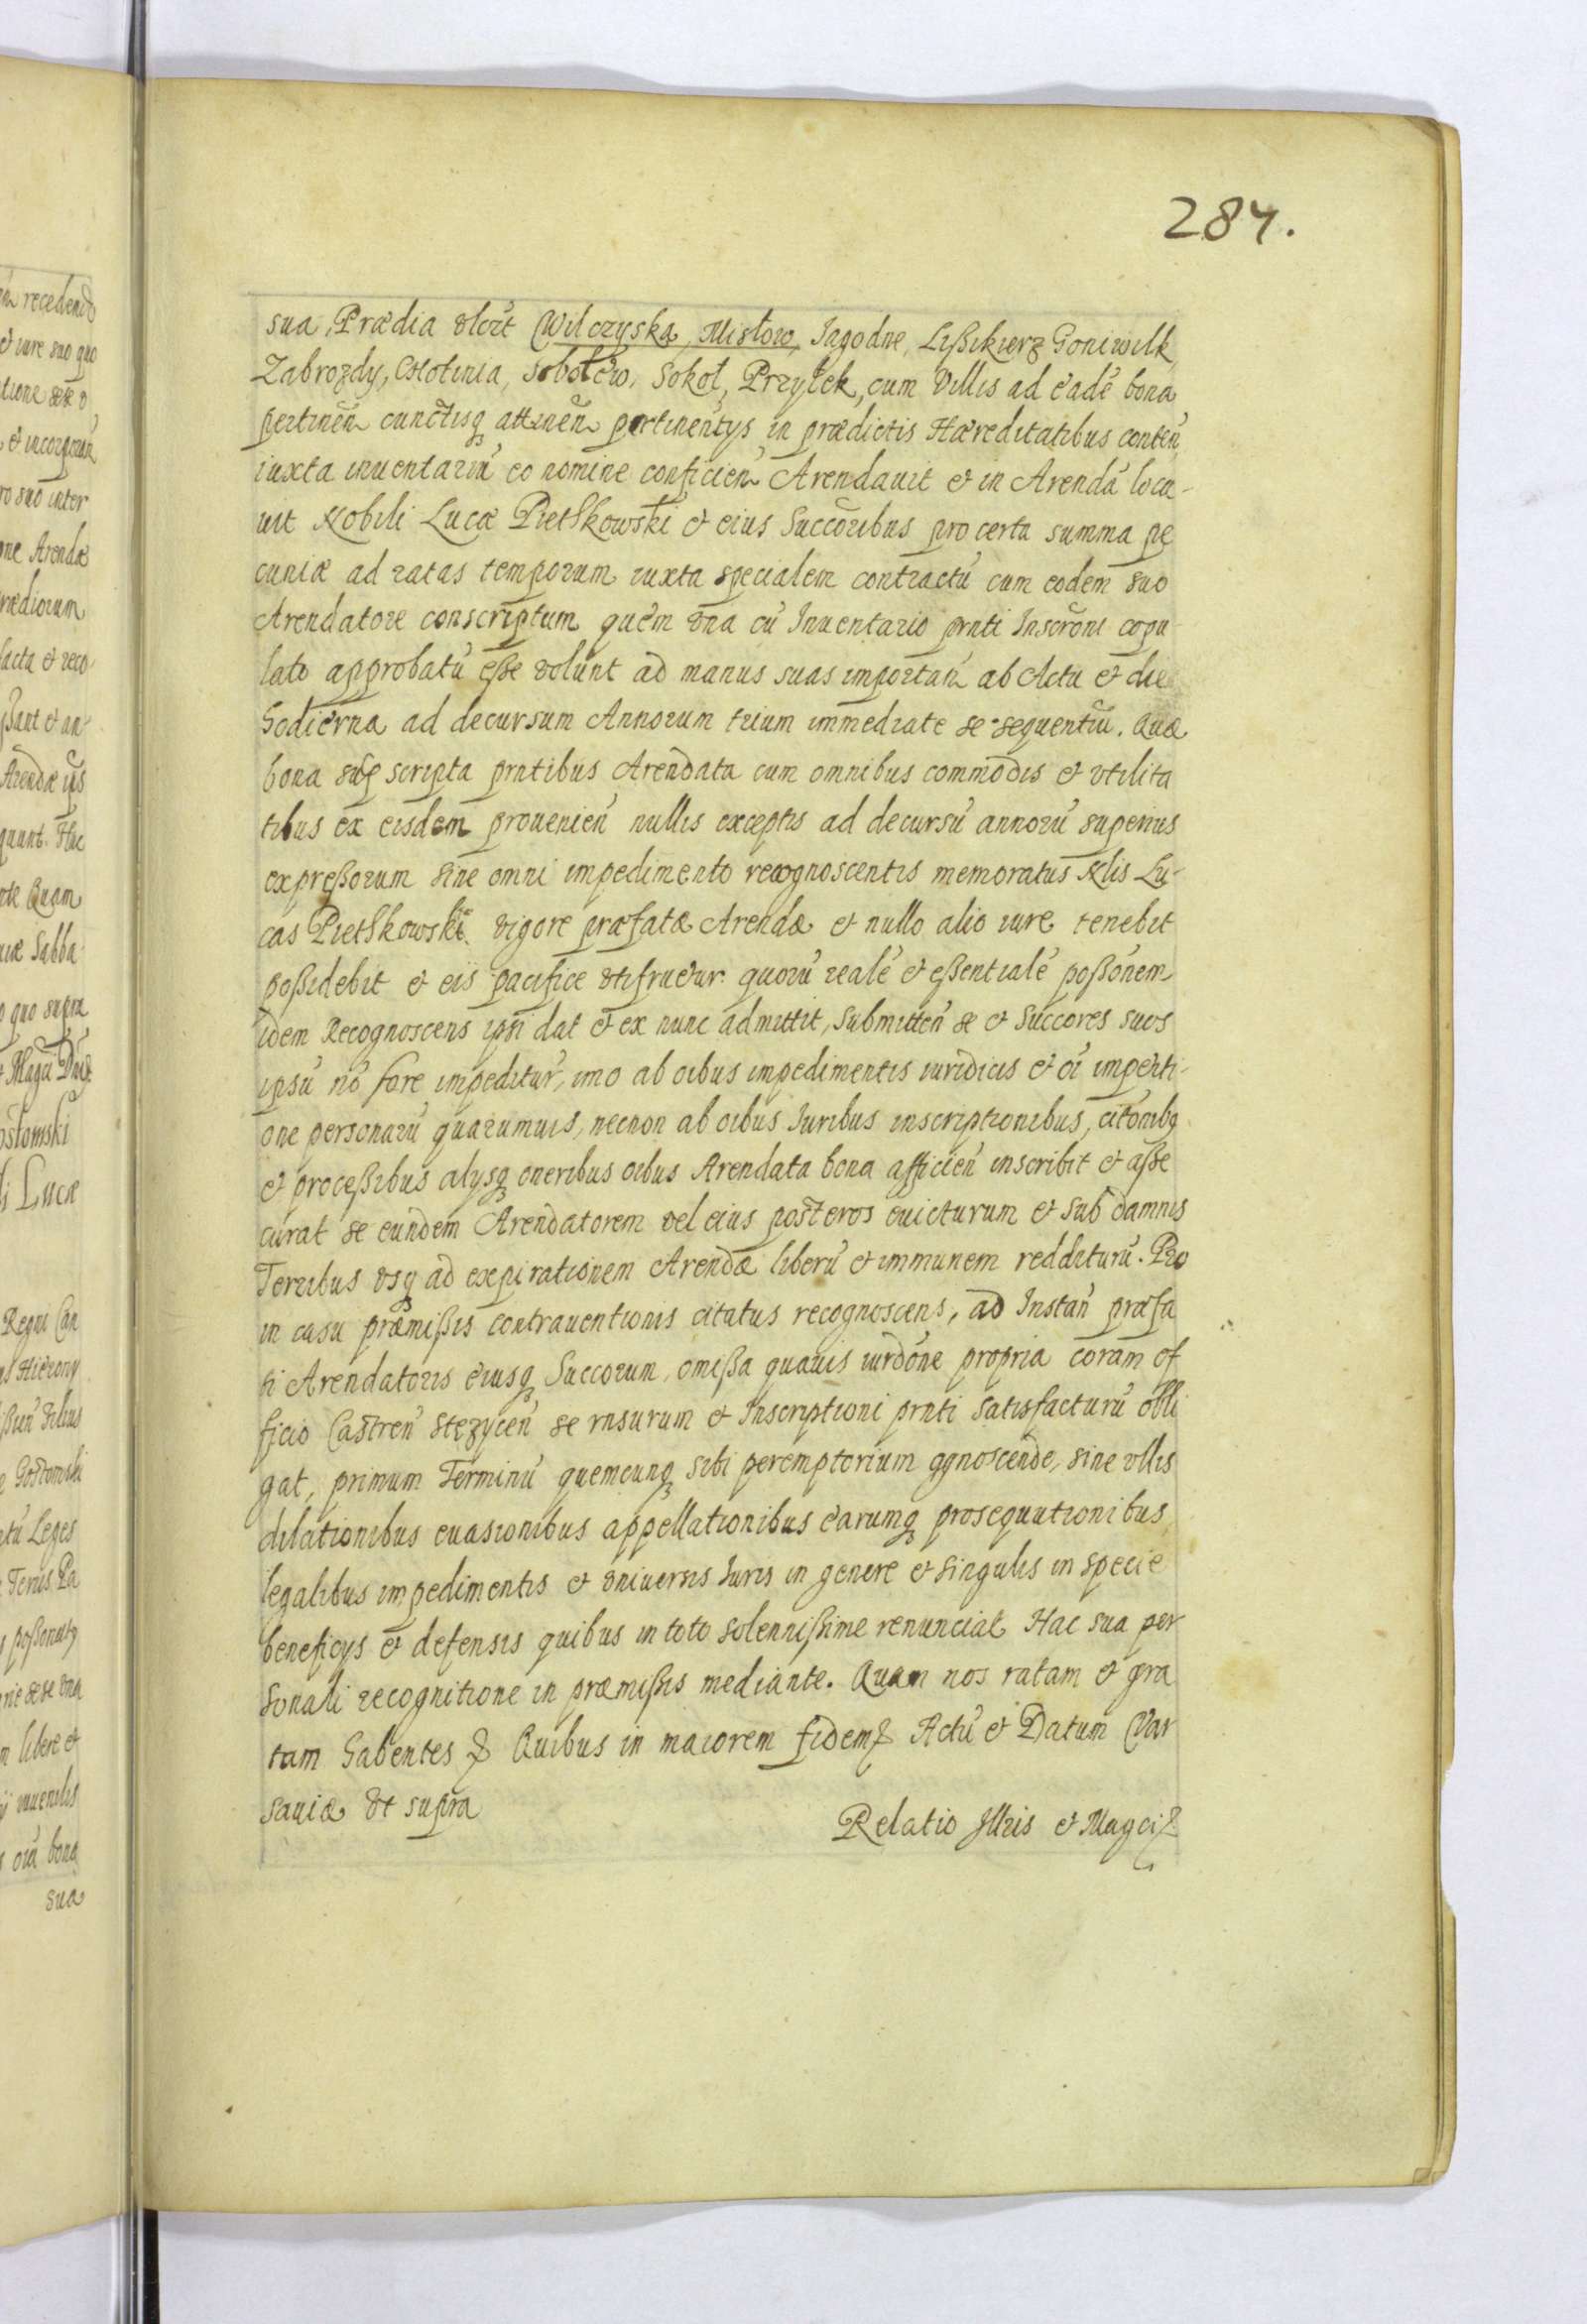 287.
sua, Prædia vlcit Wilczyska, Misłow, Jagodne, Lißikierz Goniwilk
Zabrozdy, Osłotinia, Sobołew, Sokoł, Przyłek, cum Villis ad eadē bona
pertinēn cunctisq attinēn pertinentys in prædictis Hæreditatibus conten
iuxta inuentariū eo nomine conficien Arendauit et in Arendā loca-
uit Nobili Lucæ Piethkowski et eius Succoribus pro certa summa pe
cuniæ ad ratas temporum iuxta specialem contractū cum eodem suo
Arendatore conscriptum quem vna cū Inuentario prnti Inscroni copu
lato approbatū esse volunt ad manus suas importan ab Actu et die
hodierna ad decursum Annorum trium immediate se sequentiu. Quæ
bona sup scripta prntibus Arendata cum omnibus commodis et vtilita
tibus ex eisdem prouenien nullis exceptis ad decursū annorū superius
expreßorum sine omni impedimento recognoscentis memoratus Nlis Lu-
cas Piethkowski vigore præfatæ Arendæ et nullo alio iure tenebit
poßidebit et eis pacifice vtifruetur quorū realē et eßentialē poßonem
idem Recognoscens ipsi dat et ex nunc admittit, submitten se et Succores suos
ipsū nō fore impeditur, imo ab oibus impedimentis iuridicis et oi imperti-
one personarū quarumuis, necnon ab oibus Iuribus inscriptionibus, citonibq
et proceßibus alysq oneribus oibus Arendata bona afficien inscribit et aße
curat se eundem Arendatorem vel eius posteros euicturum et sub damnis
Terribus vsq ad expirationem Arendæ liberū et immunem redditurū. Pro
in casu præmißis contrauentionis citatus recognoscens, ad Instan præfa
ti Arendatoris eiusq Succorum, omißa quauis iurdone propria coram of
ficio Castren Stęzycen se rnsurum et Inscriptioni prnti satisfacturū obli
gat, primum Terminū quemcunq sibi peremptorium qgnoscende, sine vllis
dilationibus euasionibus appellationibus earumq prosequutionibus
legalibus impedimentis et vniuersis Iuris in genere et singulis in specie
beneficys et defensis quibus in toto solennißime renunciat Hac sua per
sonali recognitione in præmißis mediante. Quam nos ratam et gra
tam habentes Quibus in maiorem fidem Actū et Datum Var
sauiæ vt supra
Relatio Jllris et Magci